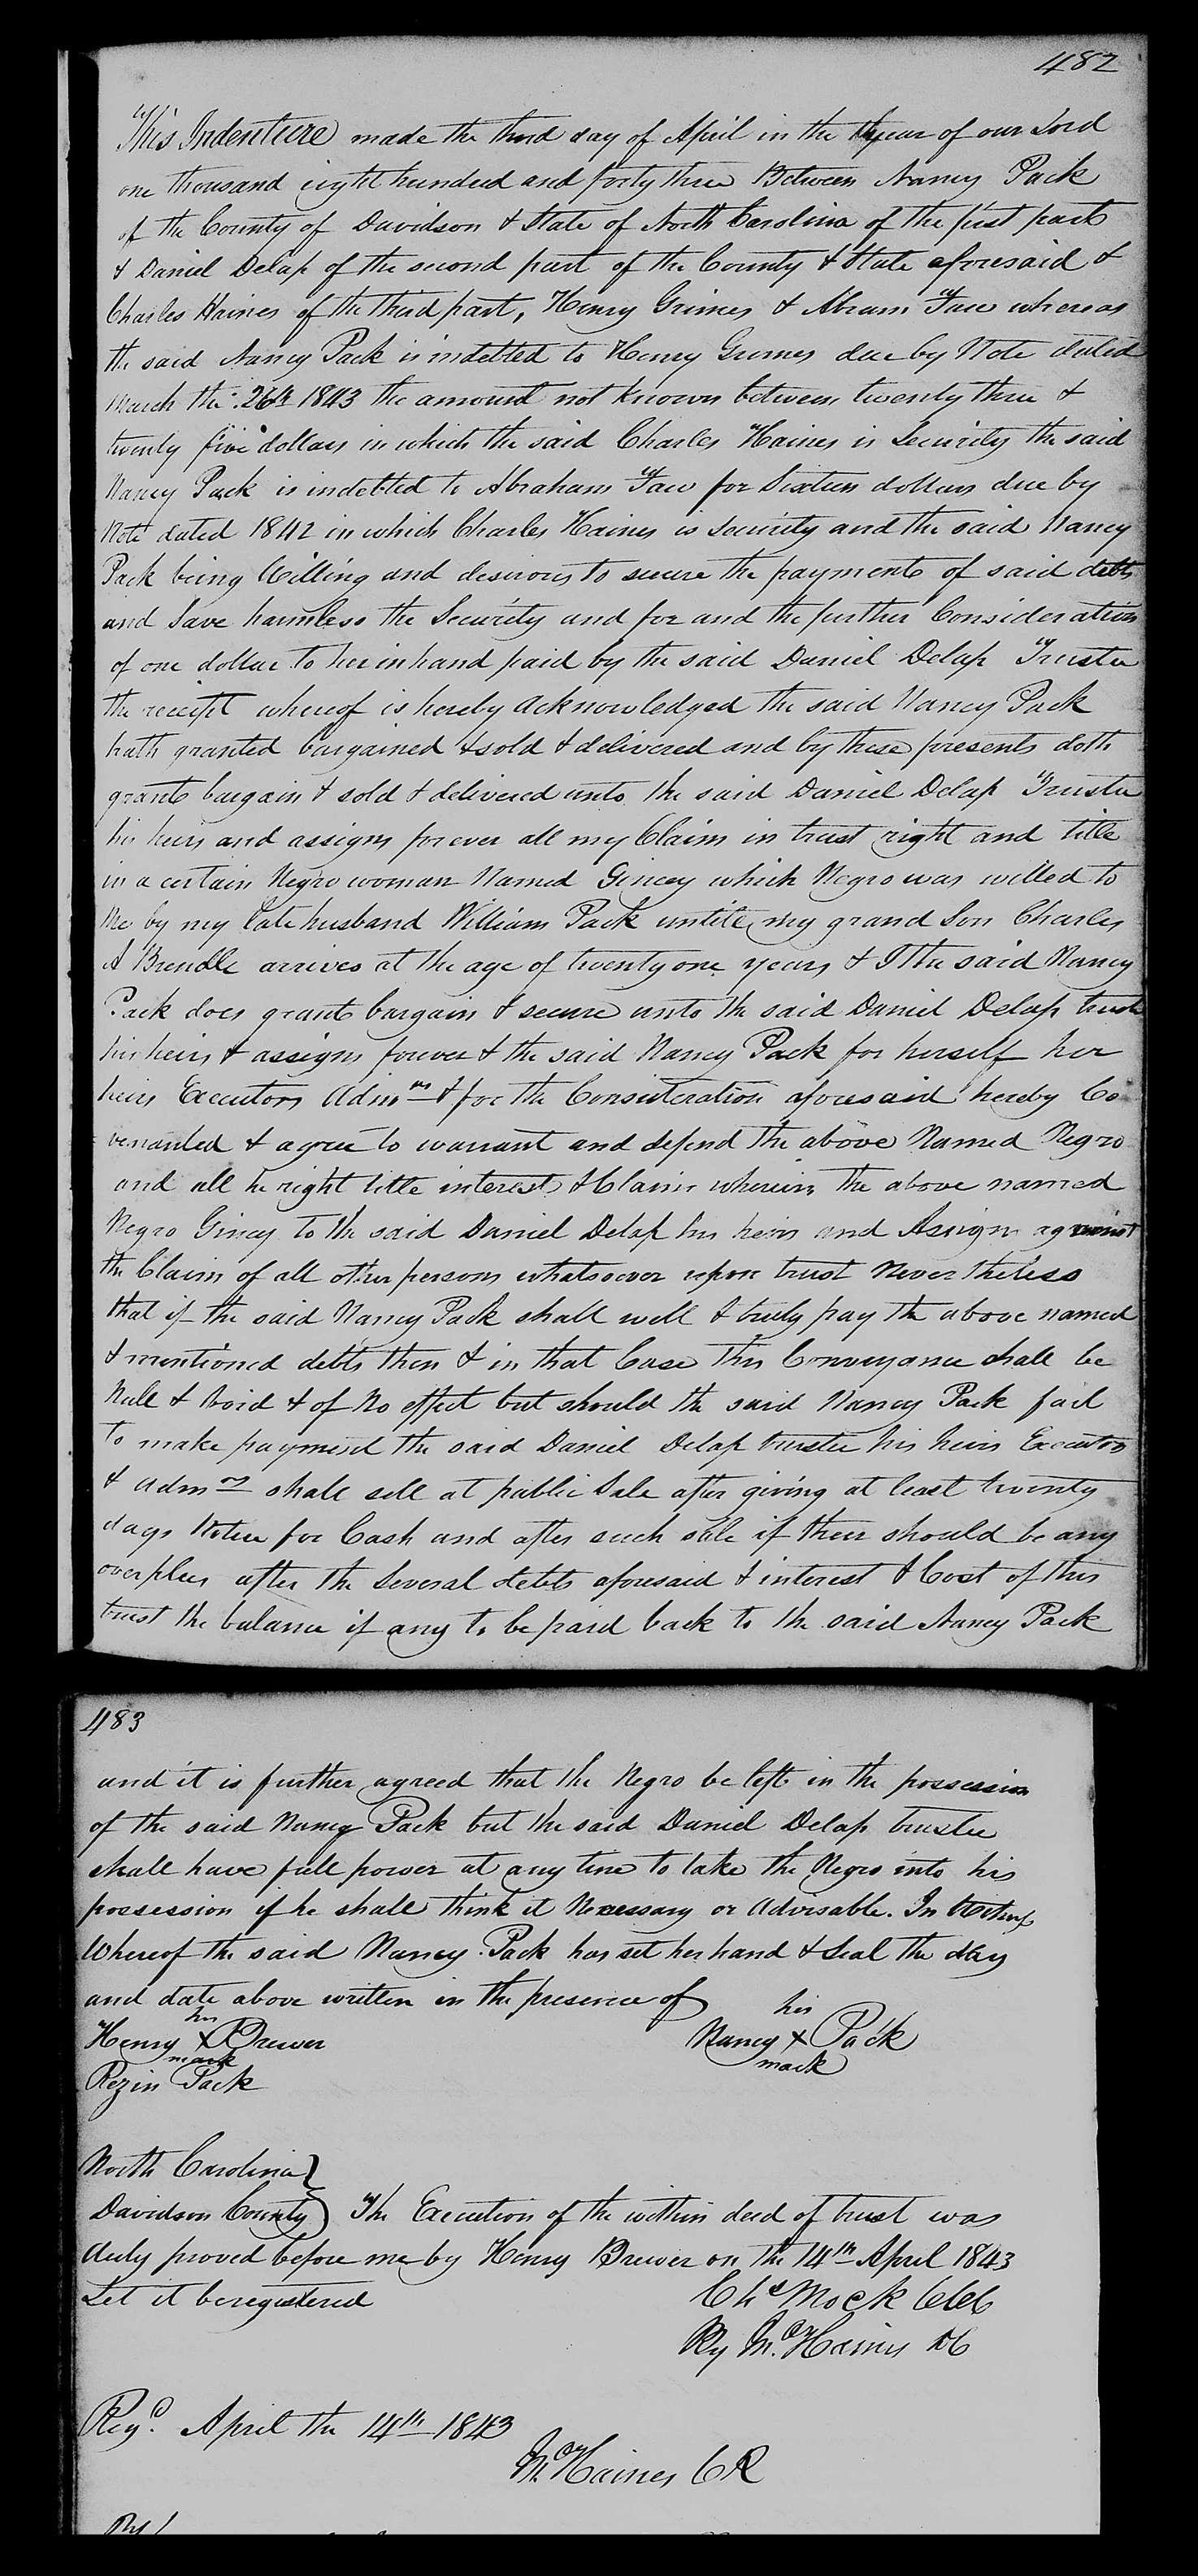 482
This Indenture made the third day of April in the year of our Lord
one thousand eight hundred and forty three Between Nancy Pack
of the County of Davidson & State of North Carolina of the first part
& Daniel Delap of the second part of the County & State aforesaid &
Charles Haines of the third part, Henry Grimes & Abram Faw whereas
the said Nancy Pack is indebted to Henry Grimes due by Note dated
March the 26th 1843 the amount not known between twenty three &
twenty five dollars in which the said Charles Haines is Security the said
Nancy Pack is indebted to Abraham Faw for Sixteen dollars due by
Note dated 1842 in which Charles Haines is Security and the said Nancy
Pack being Willing and desirous to secure the payments of said debts
and Save harmless the Security and for and the further Consideration
of one dollar to her in hand paid by the said Daniel Delap Trustee
the receipt whereof is hereby acknowledged the said Nancy Pack
hath granted bargained & sold & delivered and by these presents doth
grant bargain & sold & delivered unto the said Daniel Delap Trustee
his heirs and assigns forever all my Claim in trust right and title
in a certain Negro woman Named Gincey which Negro was willed to
Me by my late husband William Pack untill my grand Son Charles
A Brendle arrives at the age of twenty one years & I the said Nancy
Pack does grant bargain & secure unto the said Daniel Delap trustee
his heirs & assigns forever & the said Nancy Pack for herself her
heirs Executors Admrs & for the Consideration aforesaid hereby Co
venanted & agree to warrant and defend the above Named Negro
and all he right title interest & Claim wherein the above named
Negro Gincy to the said Daniel Delap his heirs and Assigns against
the Claim of all other persons whatsoever upon trust Nevertheless
that if the said Nancy Pack shall well & truly pay the above named
& mentioned debts then & in that Case this Conveyance shall be
Null & Void & of No effect but should the said Nancy Pack fail
to make payment the said Daniel Delap trustee his heirs Executors
& admrs shall sell at public Sale after giving at least twenty
days Notice for Cash and after such sale if there should be any
overplus after the Several debts aforesaid & interest & Cost of this
trust the balance if any to be paid back to the said Nancy Pack
483
and it is further agreed that the Negro be left in the possession
of the said Nancy Pack but the said Daniel Delap trustee
shall have full power at any time to take the Negro into his
possession if he shall think it Necessary or Advisable. In Witness
Whereof the said Nancy Pack has set her hand & Seal the day
and date above written in the presence of
his
Henry X Brewer
mark
Rezin Pack
his
Nancy X Pack
mark
North Carolina }
Davidson County } The Execution of the within deed of trust was
duly proved before me by Henry Brewer on the 14th April 1843
Let it be registered
Chs Mock CCC
By Mor Haines DC
Regd. April the 14th 1843
Mor Haines CR